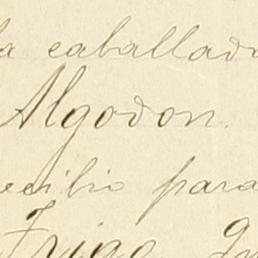 la caballada
Algodon.
ecilio para
Trigo. Gu